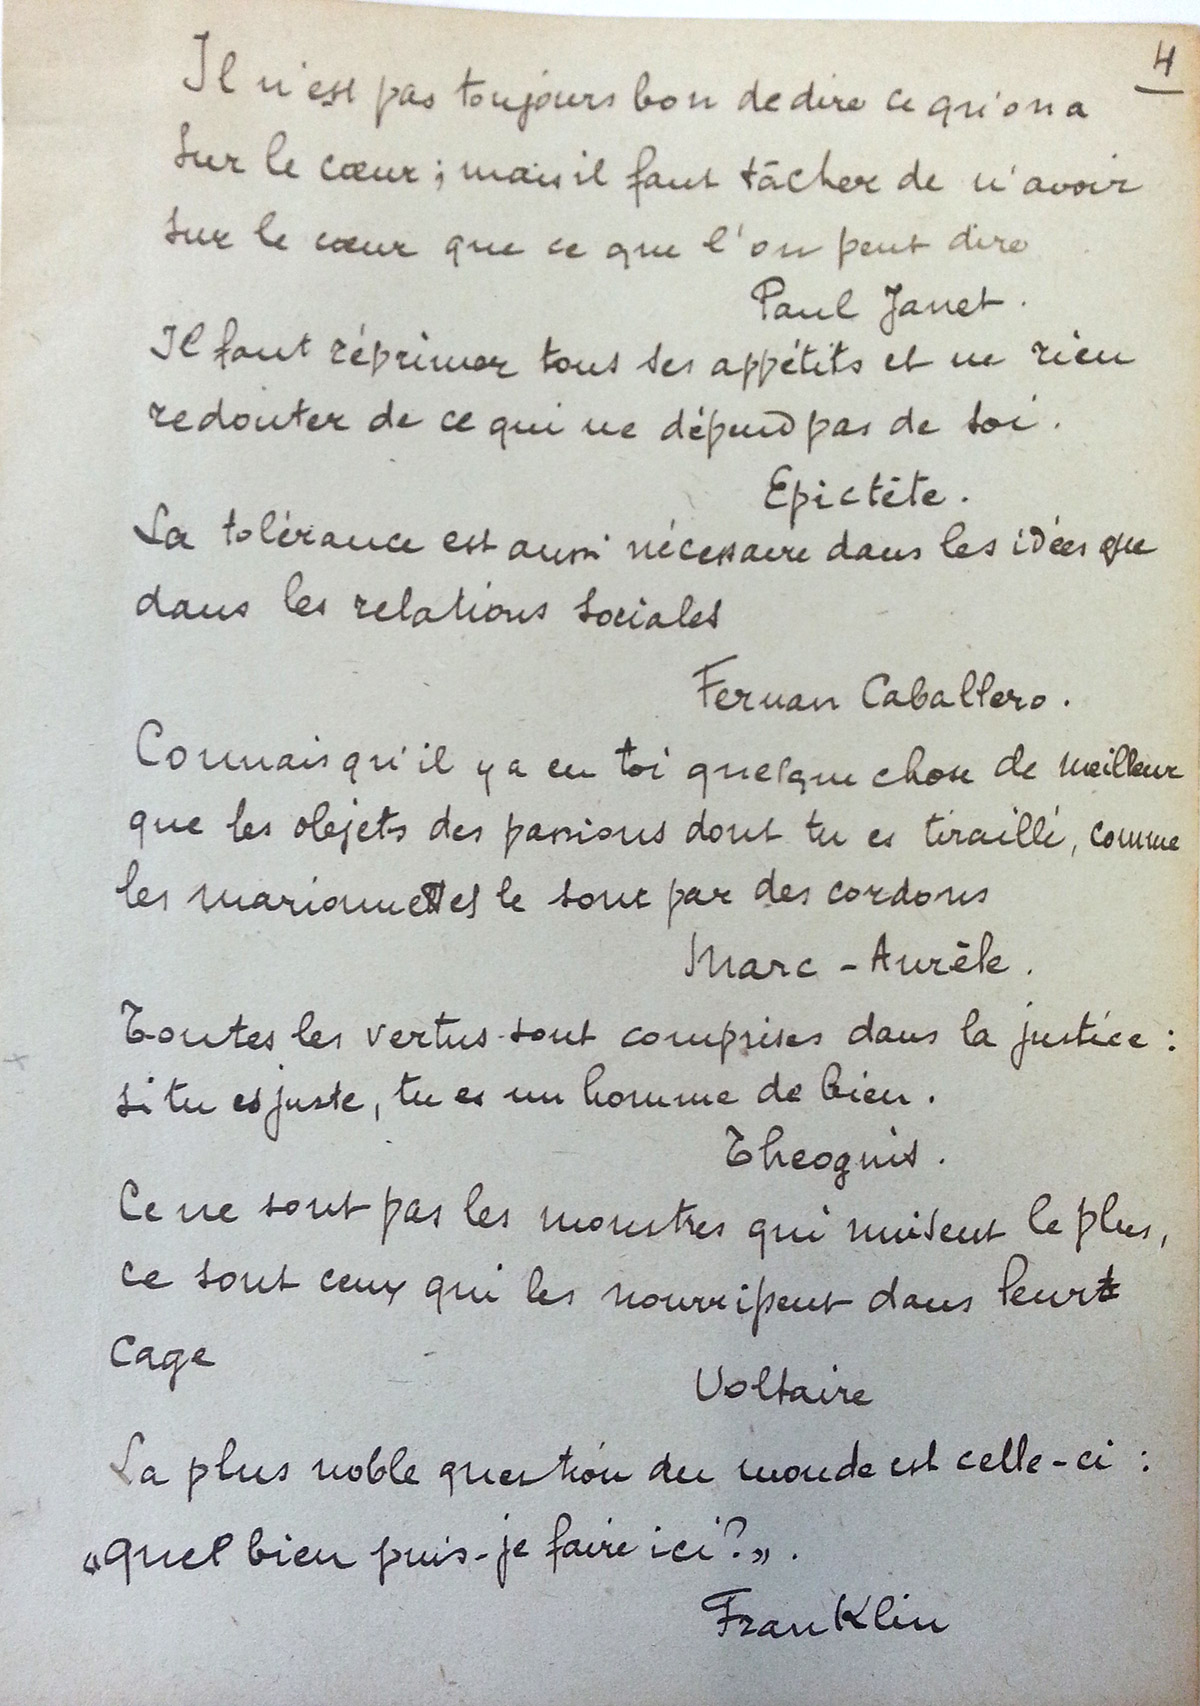 4
Il n'est pas toujours bon de dire ce qu'on a
sur le cœur ; mais il faut tâcher de n'avoir
sur le cœur que ce que l'on peut dire
Paul Janet .
Il faut réprimer tous ses appétits et ne rien
redouter de ce qui ne dépend pas de soi .
Epictète .
La tolérance est aussi nécessaire dans les idées que
dans les relations sociales
Fernan Caballero .
Connais qu'il y a en toi quelque chose de meilleur
que les objets des passions dont tu es tiraillé, comme
les marionnettes le sont par des cordons
Marc - Aurèle .
Toutes les vertus sont comprises dans la justice :
si tu es juste, tu es un homme de bien .
Theognis .
Ce ne sont pas les monstres qui nuisent le plus,
ce sont ceux qui les nourrissent dans leur
cage
Voltaire
La plus noble question du monde est celle-ci :
"Quel bien puis-je faire ici ?" .
Franklin